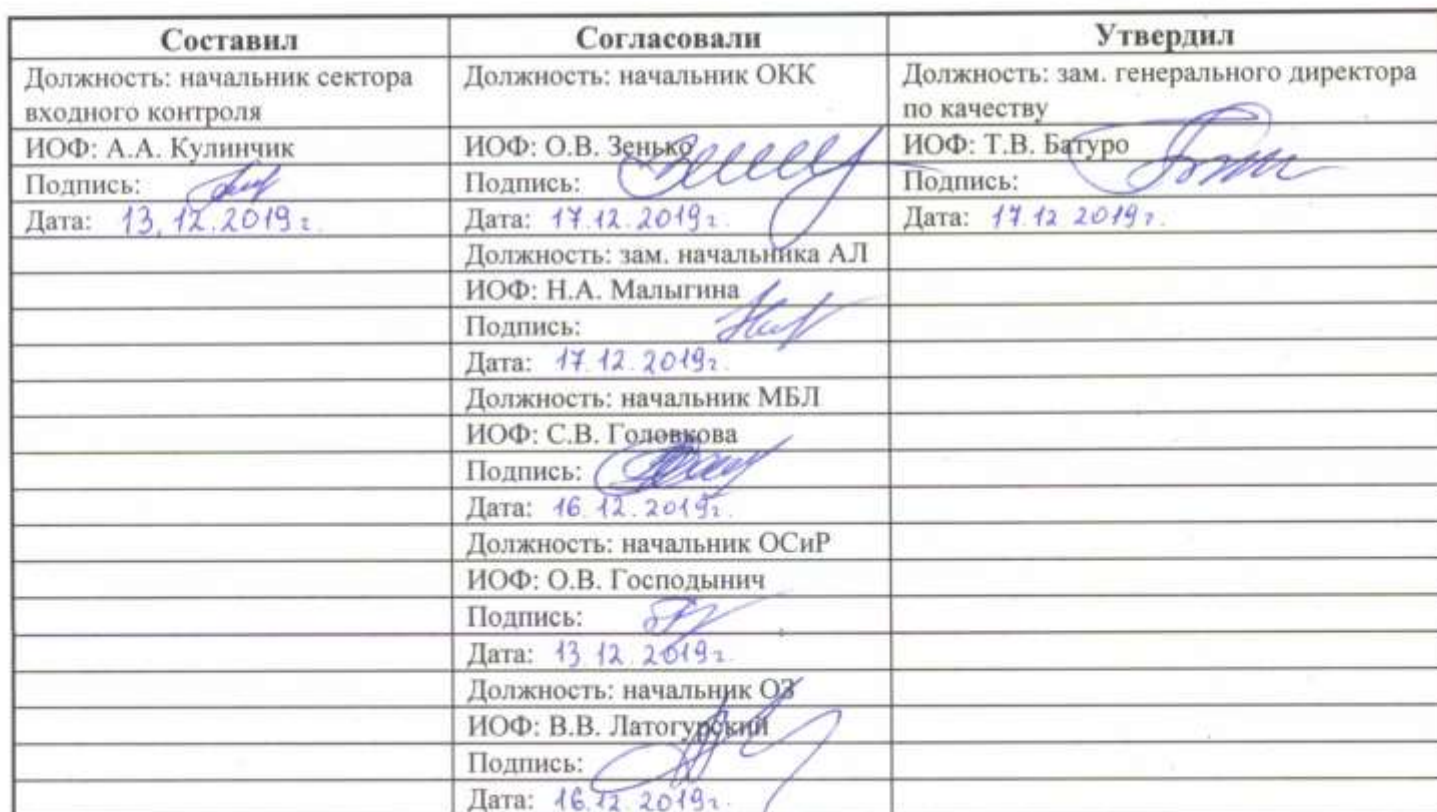 Составил Согласовали Утвердил
Должность: начальник сектора Должность: начальник ОКК Должность: зам. генерального директора
входного контроля по качеству
ИОФ: А.А. Кулинчик ИОФ: О.В. Зенько ИОФ: Т.В. Батуро
Подпись: Подпись: Подпись:
Дата: 13.12.2019г. Дата: 17.12.2019г. Дата: 17.12 2019г.
Должность: зам. начальника АЛ
ИОФ: Н.А. Малыгина
Подпись:
Дата: 17.12.2019г.
Должность: начальник МБЛ
ИОФ: С.В. Головкова
Подпись:
Дата: 16.12.2019г.
Должность: начальник ОСиР
ИОФ: О.В. Господынич
Подпись:
Дата: 13.12.2019г.
Должность: начальник ОЗ
ИОФ: В.В. Латогурский
Подпись:
Дата: 16.12.2019г.